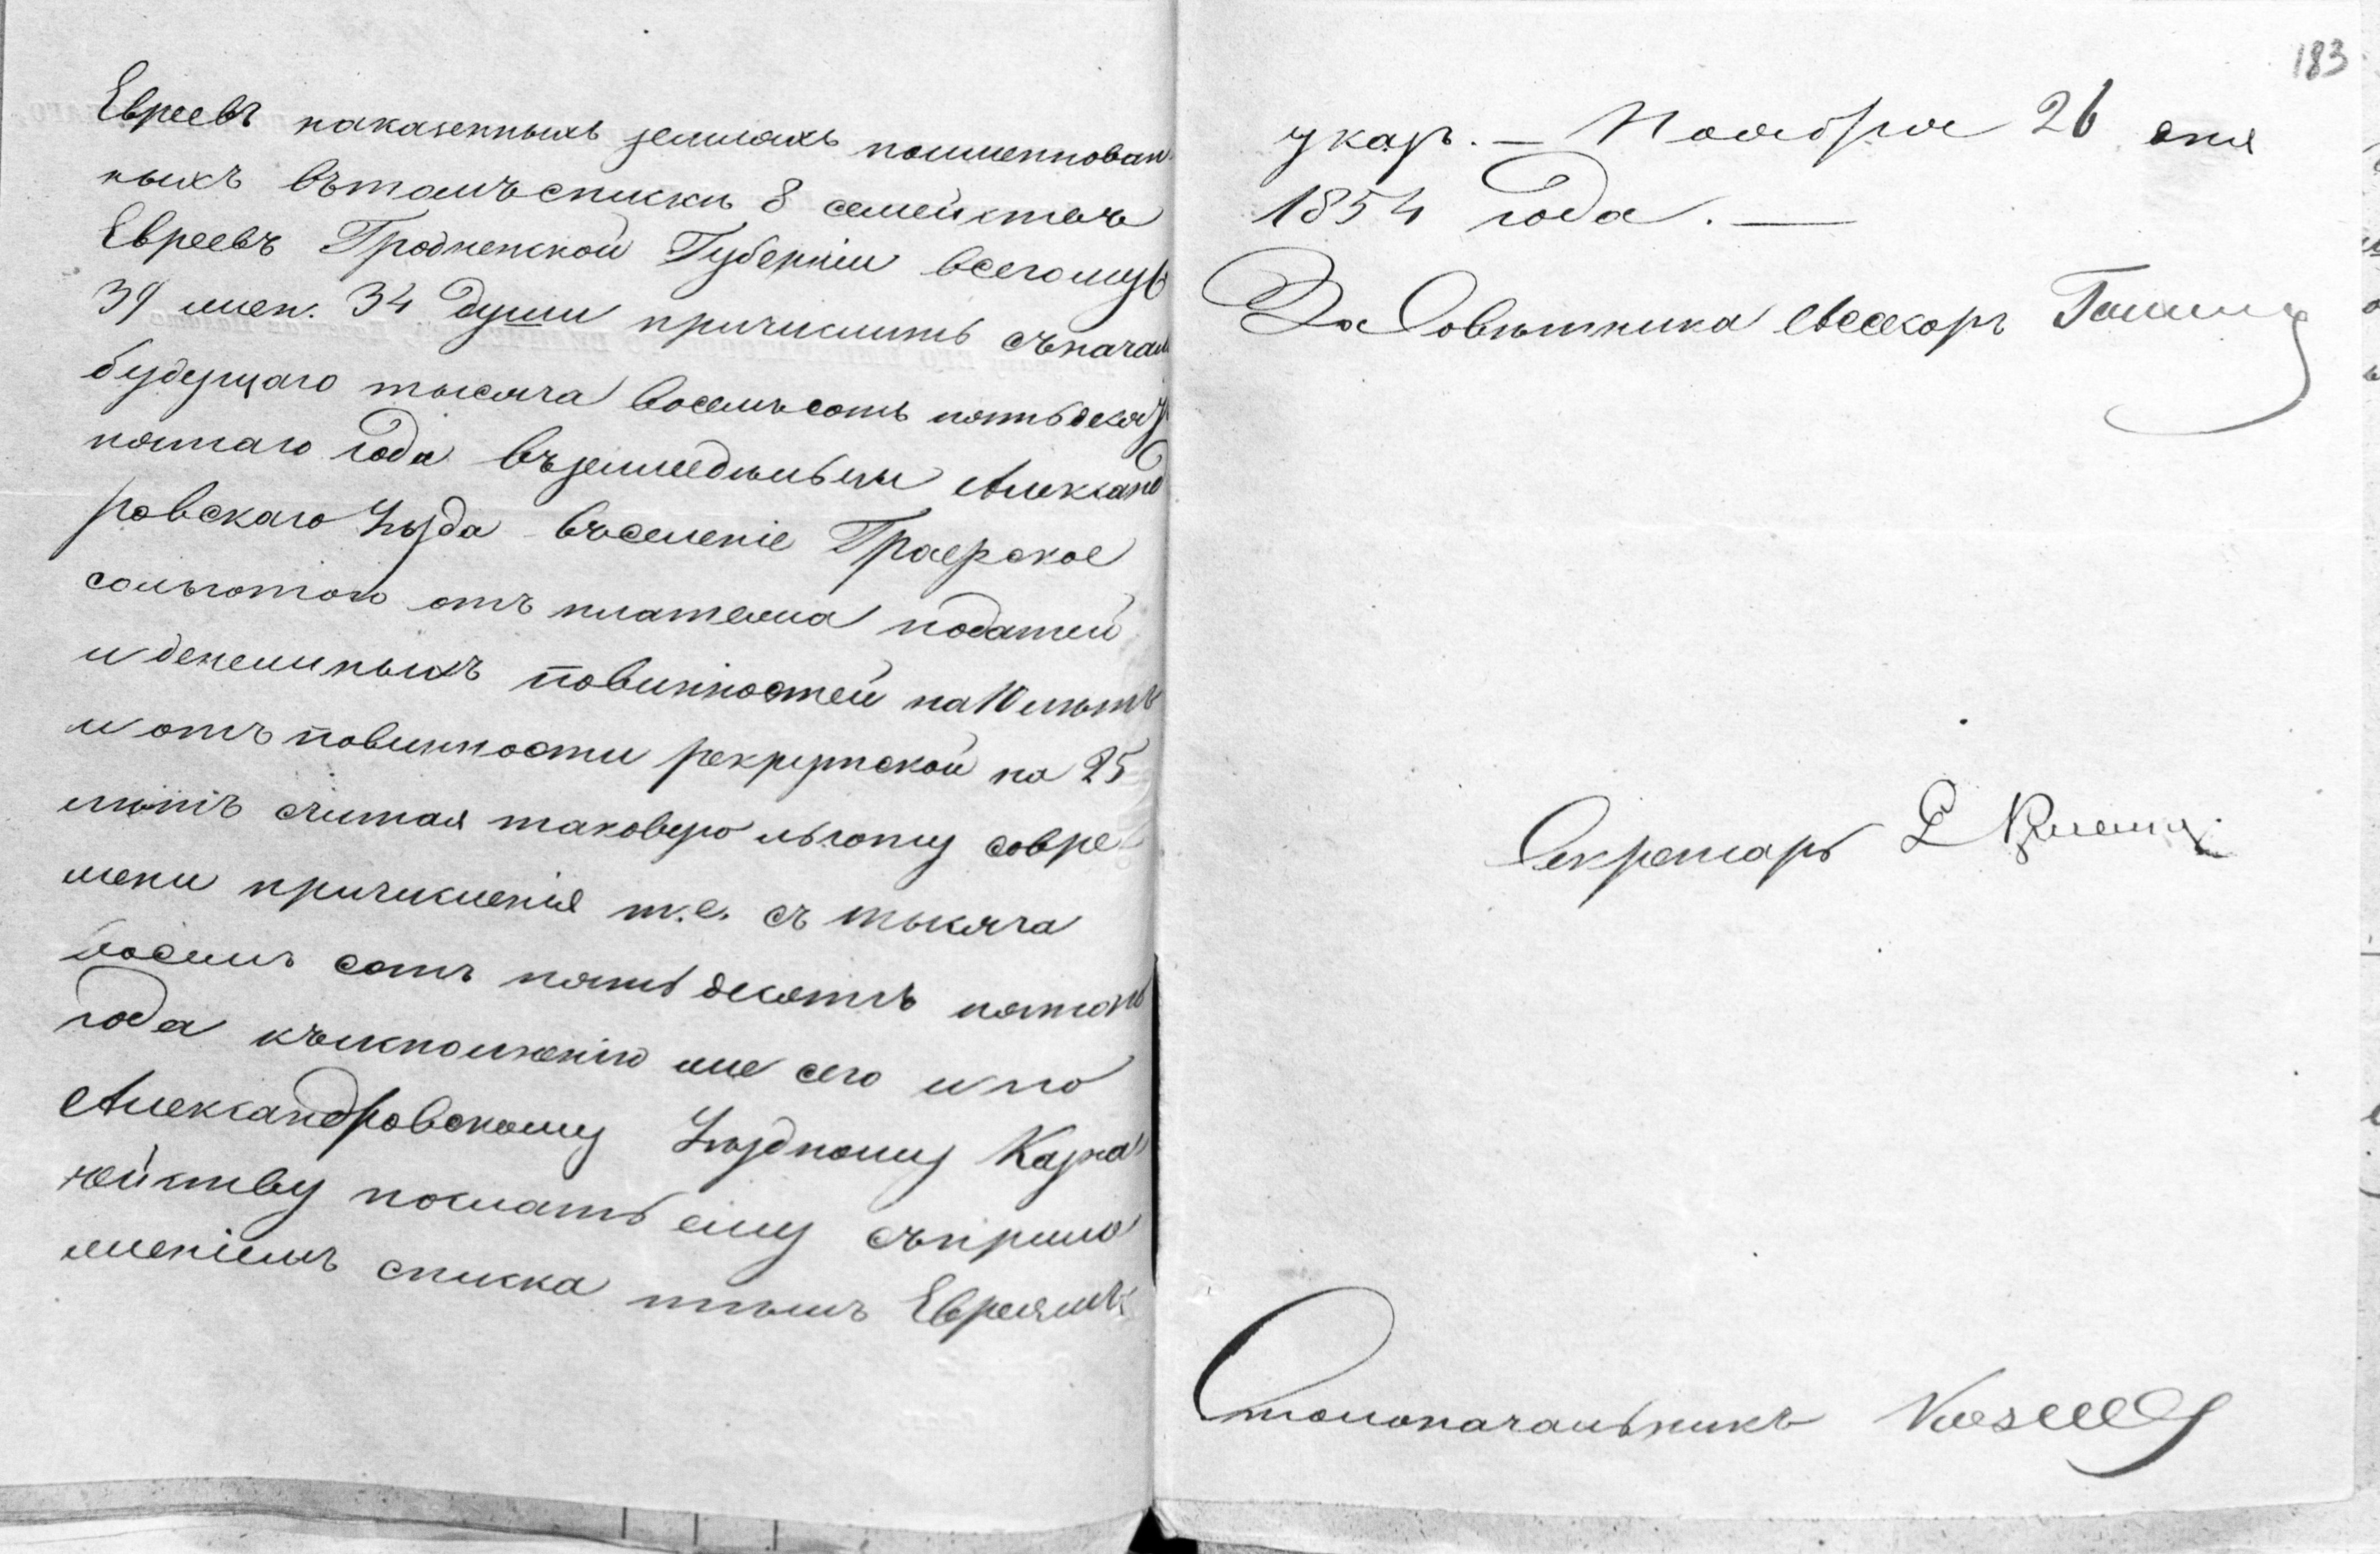 Евреевъ наказенныхъ земляхъ поименован
ныхъ вътомъ списки 8 семействъ
Евреевъ Гродненской Губерніи всего муж
39 жен. 34 души причислить съначала
будущаго тысяча восемьсотъ пятьдесят
пятаго года въземледельцы Александ
ровскаго Уѣзда въселеніе Графское
сольготою отъ платежа податей
и денежныхъ повинностей на 10 лѣтъ
и отъ повинности рекрутской на 25
лѣтъ считая таковую льготу совре
мени причисленія т.е. съ тысяча
восемь сотъ пятьдесятъ пятаго
года къисполненію же сего и по
Александровскому Уѣздному Казна
чейству послать ему съприло
женіемъ списка тѣмъ Евреямъ
183
указъ. — Ноября 26 дня
1854 года. —
За Совѣтника Асесоръ
Секретарь
Столоначальникъ